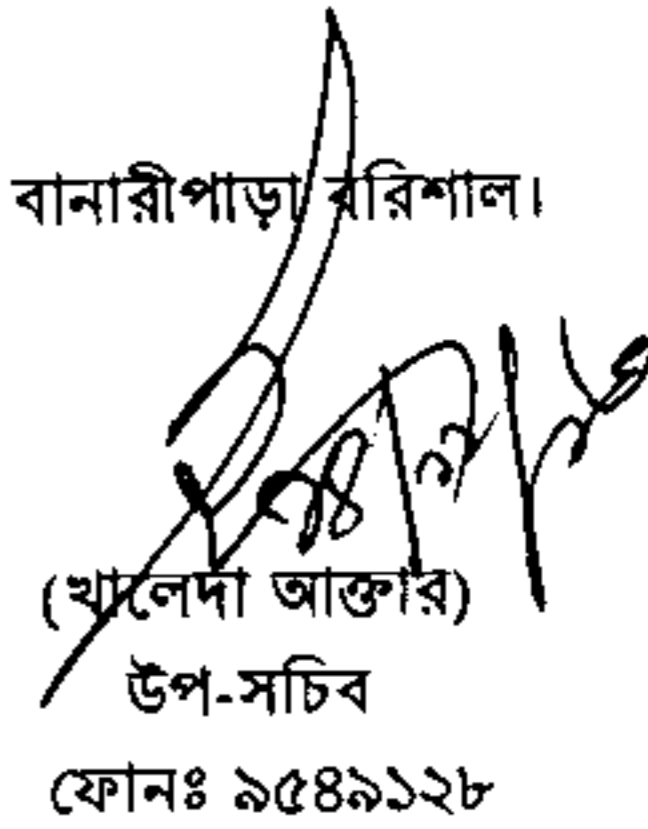 বানারীপাড়া বরিশাল।
(খালেদা আক্তার)
উপ-সচিব
ফোনঃ ৯৫৪৯১২৮